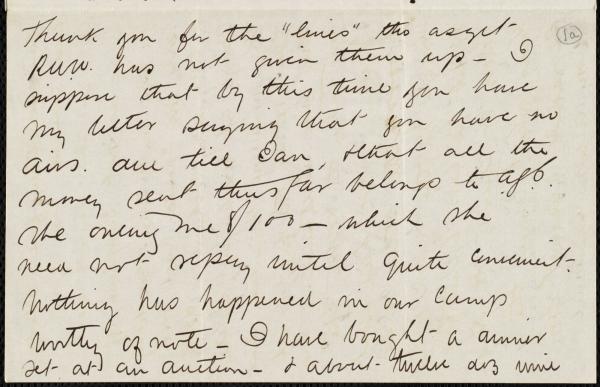 Thank you for the "lines" tho as yet
R.W.W. has not given them up - I
suppose that by this time you have
my letter saying that you have no
divs. due till Jan, & that all the
money sent thus far belongs to
she owing me $100 - which she
need not repay until quite convenient.
Nothing has happened in our camp
worthy of note - I have bought a dinner
set at an auction - & about twelve doz wine
1a